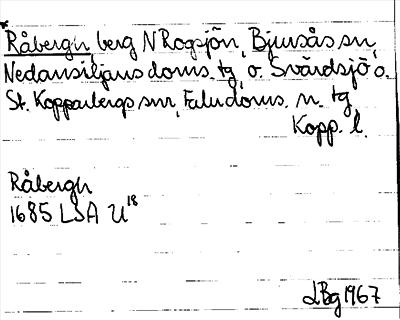 *Råbergh, berg N Rogsjön, Bjursås sn,
Nedansiljans doms. tg, o. Svärdsjö o.
St. Kopparbergs snr, Falu doms. n. tg
Kopp. l.
Råbergh
1685 LSA U18
LBg 1967